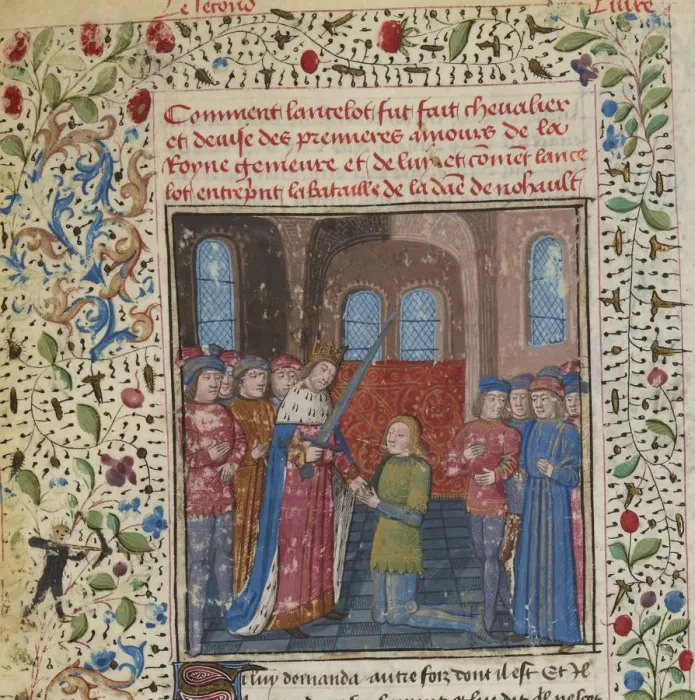 Le second Liure
Comment lancelot fut fait cheualier
et deuise des premieres amours de la
Royne genieure et de luy et coment lance
lot entreprint la bataille de la dae de nohault
Si luy demanda autre foiz dont il est Et Il